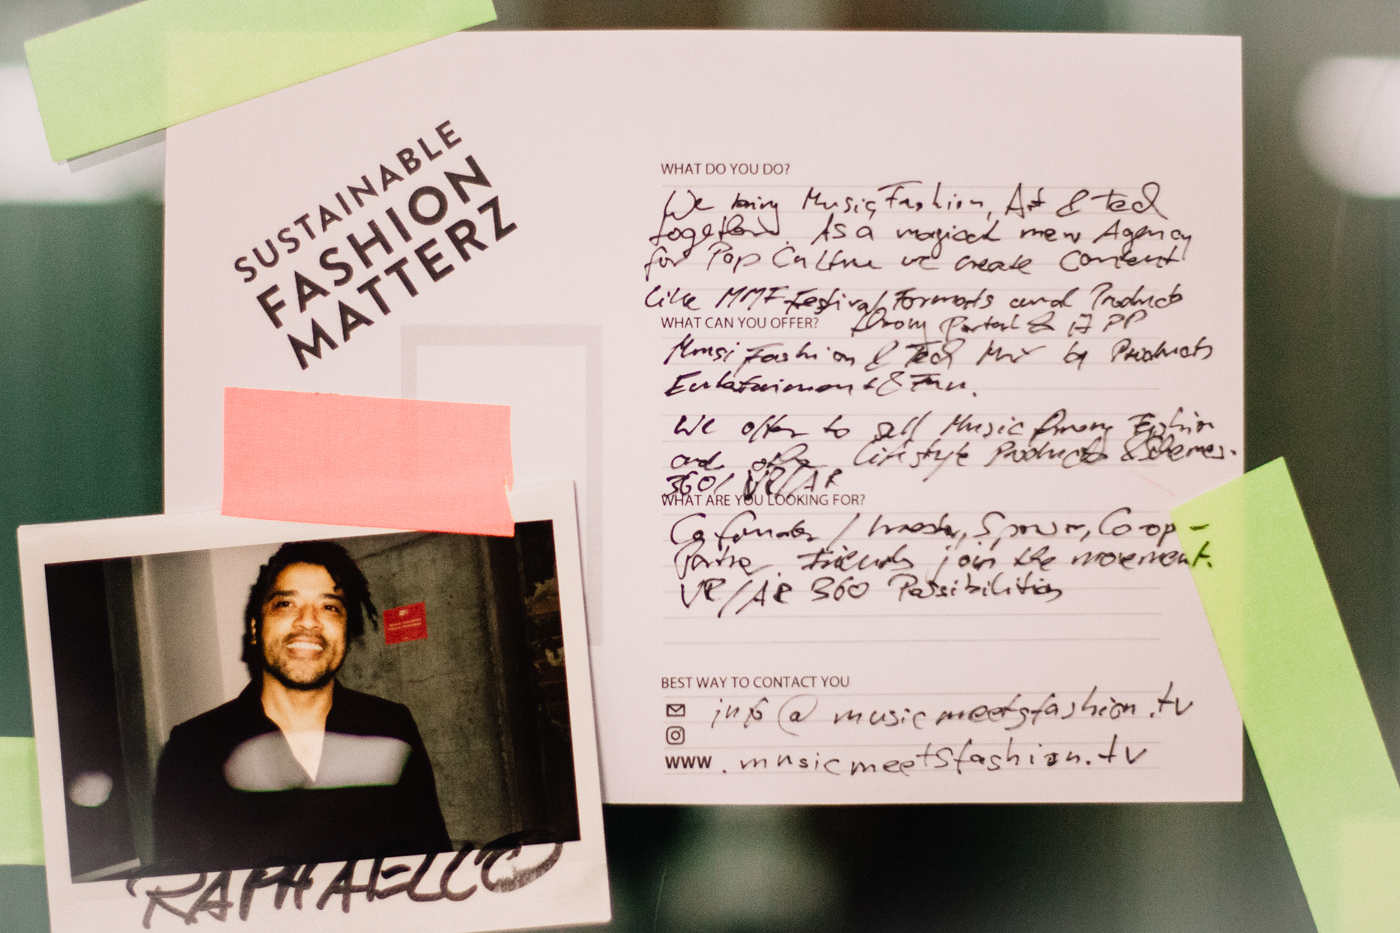 SUSTAINABLE
FASHION
MATTERZ
WHAT DO YOU DO?
We bring Music, Fashion, Art & Tech
together. As a magical new Agency
for Pop Culture we create Content
like MMF Festival, Formats and Products
WHAT CAN YOU OFFER?
Portal &
Music Fashion & Tech Mix by Products
Entertainment & Fun.
We offer to sell Music Fashion
and offer Lifestyle Products &
360/ VR/AR
WHAT ARE YOU LOOKING FOR?
Cofounder / Investor, Sponsor, Co-op-
partner, Friends join the movement.
VR/AR 360 Possibilities
BEST WAY TO CONTACT YOU
info@musicmeetsfashion.tv
WWW .musicmeetsfashion.tv
RAPHAELLO